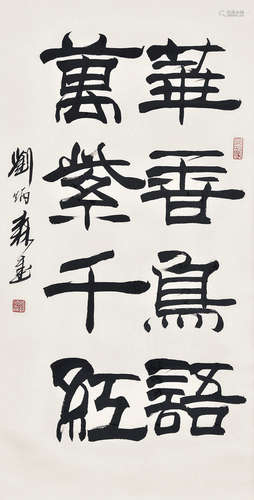 華香鳥語
萬紫千紅
劉炳森書